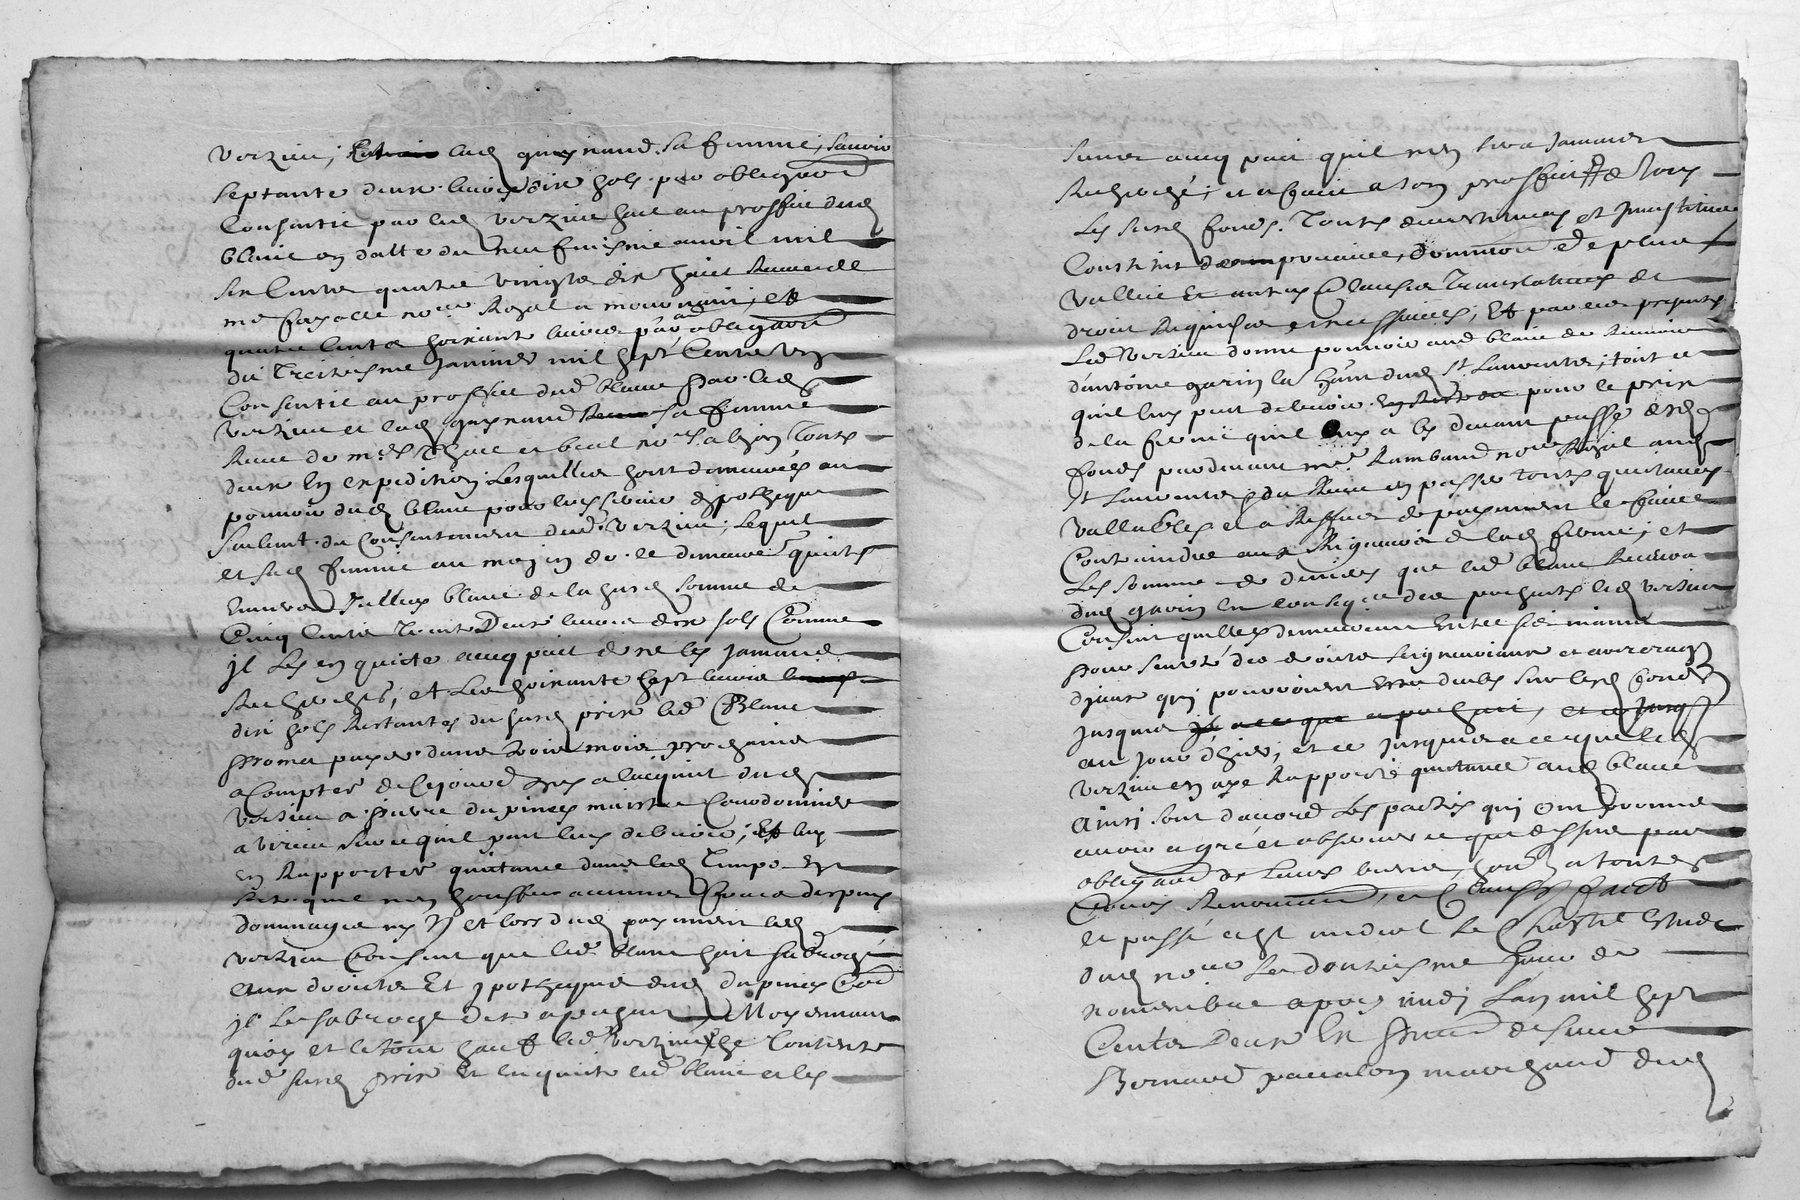 verzieu, ladᵗ guynand sa femme, scavoir
septante deux livres dix sols par obligaoñ
Consantie par led verzieu sail au proffit dud
blanc en datte du neufviesme avril mil
six Cents quatre vingts dix huict Receue de
mᵉ fayolle noʳᵉ Royal a montnant, et
quatre Cents soixante livres par obligaoñ
du Treitiesme Janvier mil sept Cents un
Consentie au proffit dudᵗ blanc par led
verzieu et lad guynand sa femme
Receue de mᵉ et beal noʳᵉˢ a lyon Toutes
deux En expedition, Lesquelles sont demeurées au
pouvoir dud blanc pour luy servir dipotheque
seulemt du Consentement dudᵗ verzieu, Lequel
et sad femme au moyen de ce demeure quitte
Envers led blanc de la susd somme de
Cinq Cents Trente Deux livres dix sols Comme
il les en quitte avecq pact de ne les jamais
Rechercher, et Les soixante sept livres
dix sols Restantes du susd prix ledᵗ Blanc
promet payer dans trois mois prochains
a Compter de Cejourd huy a lacquit dud
verzieu a pierre dupinez maistre Courdonnier
a virieu sur ce quil peut luy debvoir, Et luy
en Rapporter quittance dans led Temps En
sorte quil nen souffre aucuns fraix despens
dommages ny J et lors dud payement led
verzieu Consent que ledᵗ blanc soit subrogé
aux droits Et ypotheques dud dupinez Coe
il Le subroge des a present Moyennant
quoy et le tout sauf led verzieu se Contente
dudᵗ susd prix Et En quitte ledᵗ blanc et les
siens avecq pact quil nen sera Jamais
Recherché, et a faict a son proffit de Tous
Les susd fonds. Toutes devestitures et Investitures
Constitut de pouvoir, Dominion et de plus
vallue Et autres Clauses Translatives de
droit Requises et necessaires, Et par ces presentes
Led verzieu donne pouvoir aud blanc de Retirer
dantoine garin la dud sᵗ Laurent, tout ce
quil luy peut debvoir pour le prix
de la ferme quil luy a cy devant passé desd
fonds pardevant mᵉ Rambaud noʳᵉ Royal aud
sᵗ Laurent, du Receu en passer Toutes quittances
vallables et a Reffus de payement le faire
Contraindre aux Rigueurs de lad ferme, et
Les sommes de deniers que led blanc Recevra
dud garin En conseqᶜᵉ des presentes led verzieu
Consent quelles demeurent Entre ses mains
pour seureté des droits seigneuriaux et arrerages
diceux quy pourroient estre deubs sur lesd fonds
Jusques
au jour dhier, et ce jusques a ce que led
verzieu en aye Rapporté quittance aud blanc
Ainsi sont d'accord Les parties qui ont promis
avoir agréé et observer ce que dessus par
obligaoñ de Leurs biens, soubmis a toutes
Cours Renonceoñ, et Clauses, faict
et passé a sᵗ andeol le Chastel Estude
dud noʳᵉ Le douziesme Jour de
novembre apres midi Lan mil sept
Cents Deux En presence de sieur
Bernard paccalon marchand dud